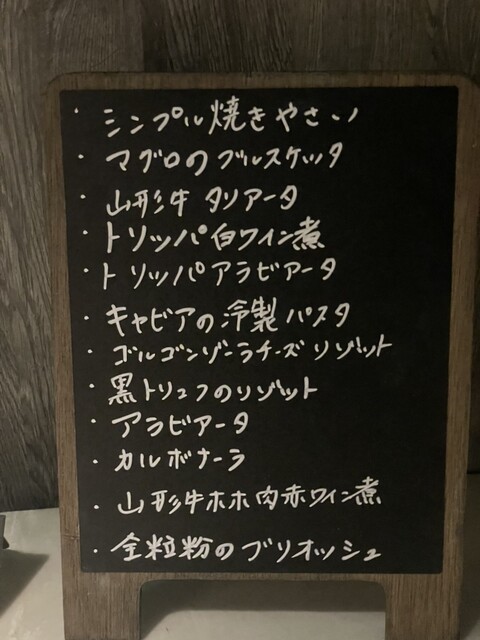 ・シンプル焼きやさい
・マグロのブルスケッタ
・山形牛 タリアータ
・トリッパ白ワイン煮
・トリッパアラビアータ
・キャビアの冷製パスタ
・ゴルゴンゾーラチーズリゾット
・黒トリュフのリゾット
・アラビアータ
・カルボナーラ
・山形牛ホホ肉赤ワイン煮
・全粒粉のブリオッシュ